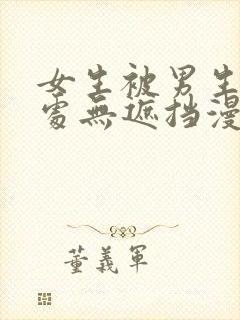 女生被男生
處無遮挡漫
董義軍